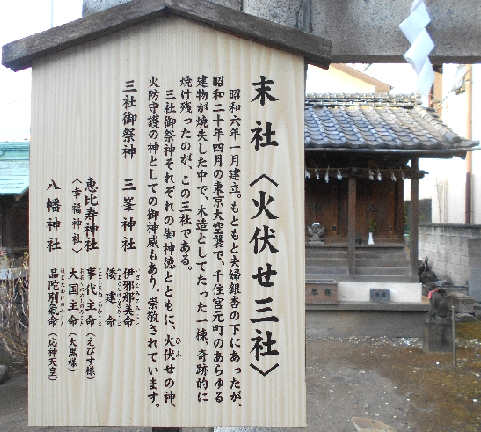 末社〈火伏せ三社〉
昭和六年一月建立。もともと夫婦銀杏の下にあったが、
昭和二十年四月の東京大空襲で、千住宮元町のあらゆる
建物が焼失した中で、木造としてたった一棟、奇跡的に
焼け残ったのが、この三社である。
三社御祭神それぞれの御神徳とともに、火伏せの神、
火防守護の神としての御神威もあり、崇敬されています。
三社御祭神
三峯神社 伊邪那美命
倭建命
恵比寿神社 事代主命(えびす様)
〈幸福神社〉 大国主命(大黒様)
八幡神社 品陀別氣命(応神天皇)